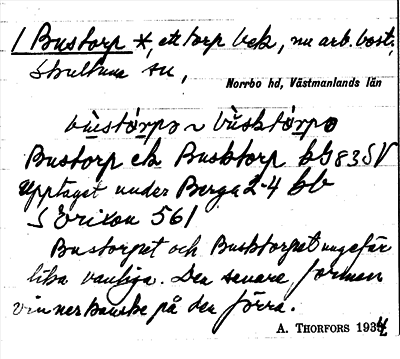 1 Bustorp *, ett torp bek, nu arb. bost.,
Skultuna sn,
Norrbo hd, Västmanlands län
bùstórpə ~ bùsktórpə
Bustorp ek Busktorp bG83SV
Upptaget under Berga 2-4 bb
S Erixon 561
Bustorpet och Busktorpet ungefär
lika vanliga. Den senare formen
vinner kanske på den förra.
A. THORFORS 1934